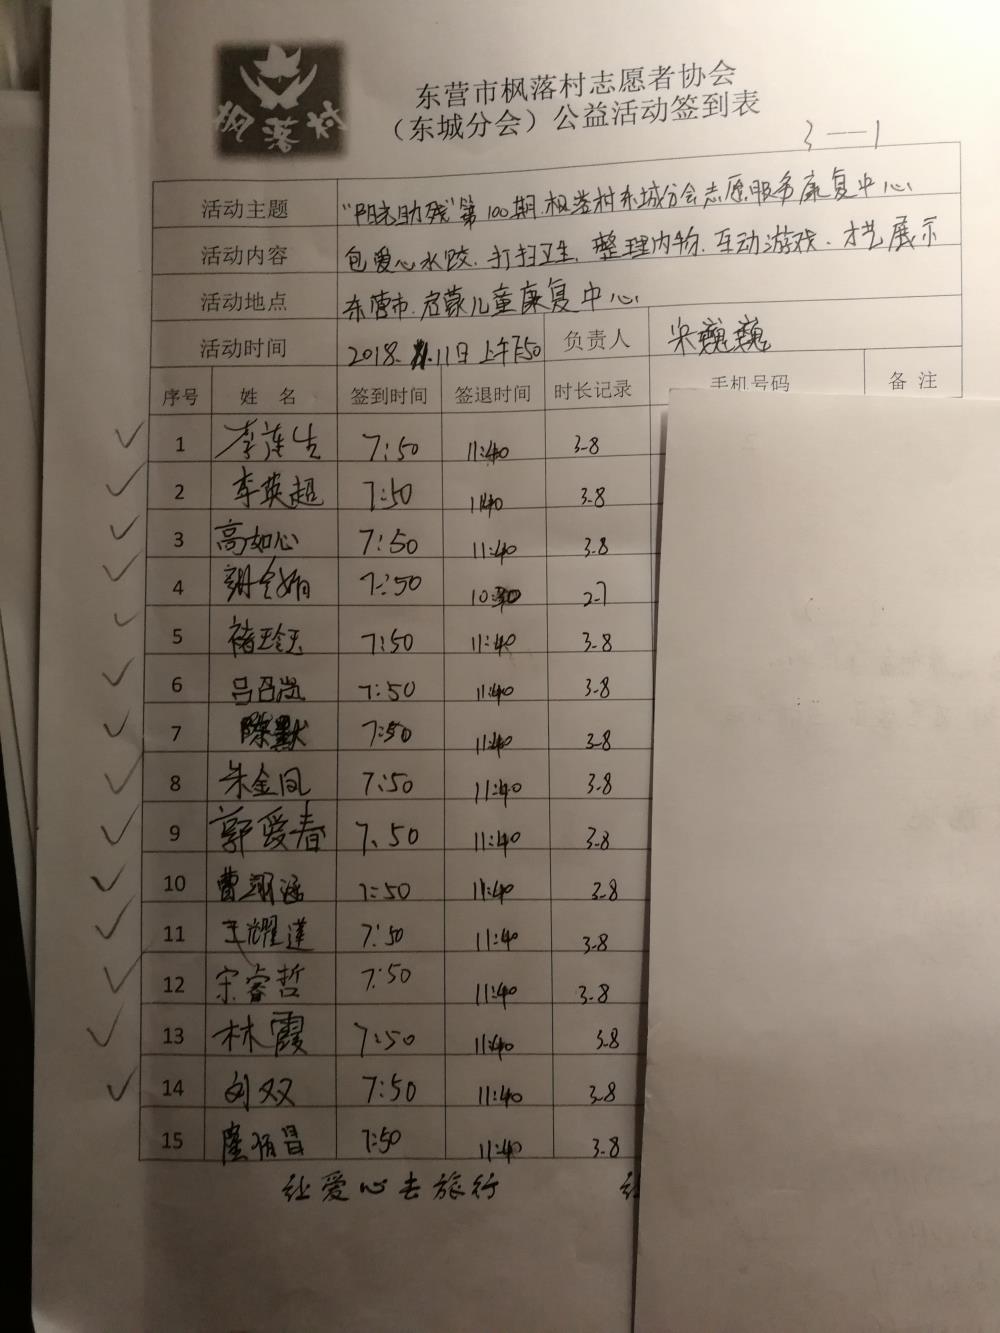 枫落村
东营市枫落村志愿者协会
（东城分会）公益活动签到表
3—1
活动主题 "阳光助残"第100期.枫落村东城分会志愿服务康复中心
活动内容 包爱心水饺.打扫卫生.整理内务.互动游戏.才艺展示
活动地点 东营市.启蒙儿童康复中心
活动时间 2018. 11日上午7:50 负责人 宋巍巍
序号 姓 名 签到时间 签退时间 时长记录 手机号码 备 注
1 李莲生 7:50 11:40 3.8
2 李英超 7:50 11:40 3.8
3 高如心 7:50 11:40 3.8
4 7:50 2.7
5 褚玲玉 7:50 11:40 3.8
6 吕召岚 7:50 11:40 3.8
7 陈默 7:50 11:40 3.8
8 朱金凤 7:50 11:40 3.8
9 郭爱春 7.50 11:40 3.8
10 曹翊涵 7:50 11:40 3.8
11 王耀莲 7:50 11:40 3.8
12 宋睿哲 7:50 11:40 3.8
13 林霞 7:50 11:40 3.8
14 刘双 7:50 11:40 3.8
15 7:50 11:40 3.8
让爱心去旅行